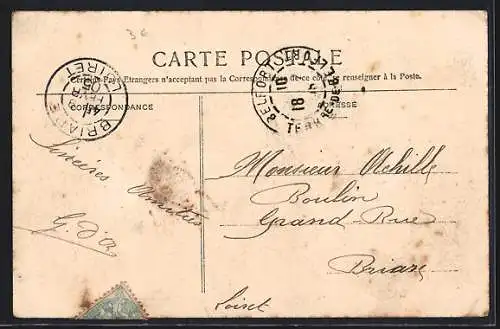 3 €
CARTE POSTALE
Certains Pays Etrangers n'acceptant pas la Correspondance de ce côté, se renseigner à la Poste.
CORRESPONDANCE
ADRESSE
BRIARE
LOIRET
BELFORT
18
Sincères
Amitiés
G. d'Or
Monsieur Achille
Boulin
Grand Rue
Briare
Loiret